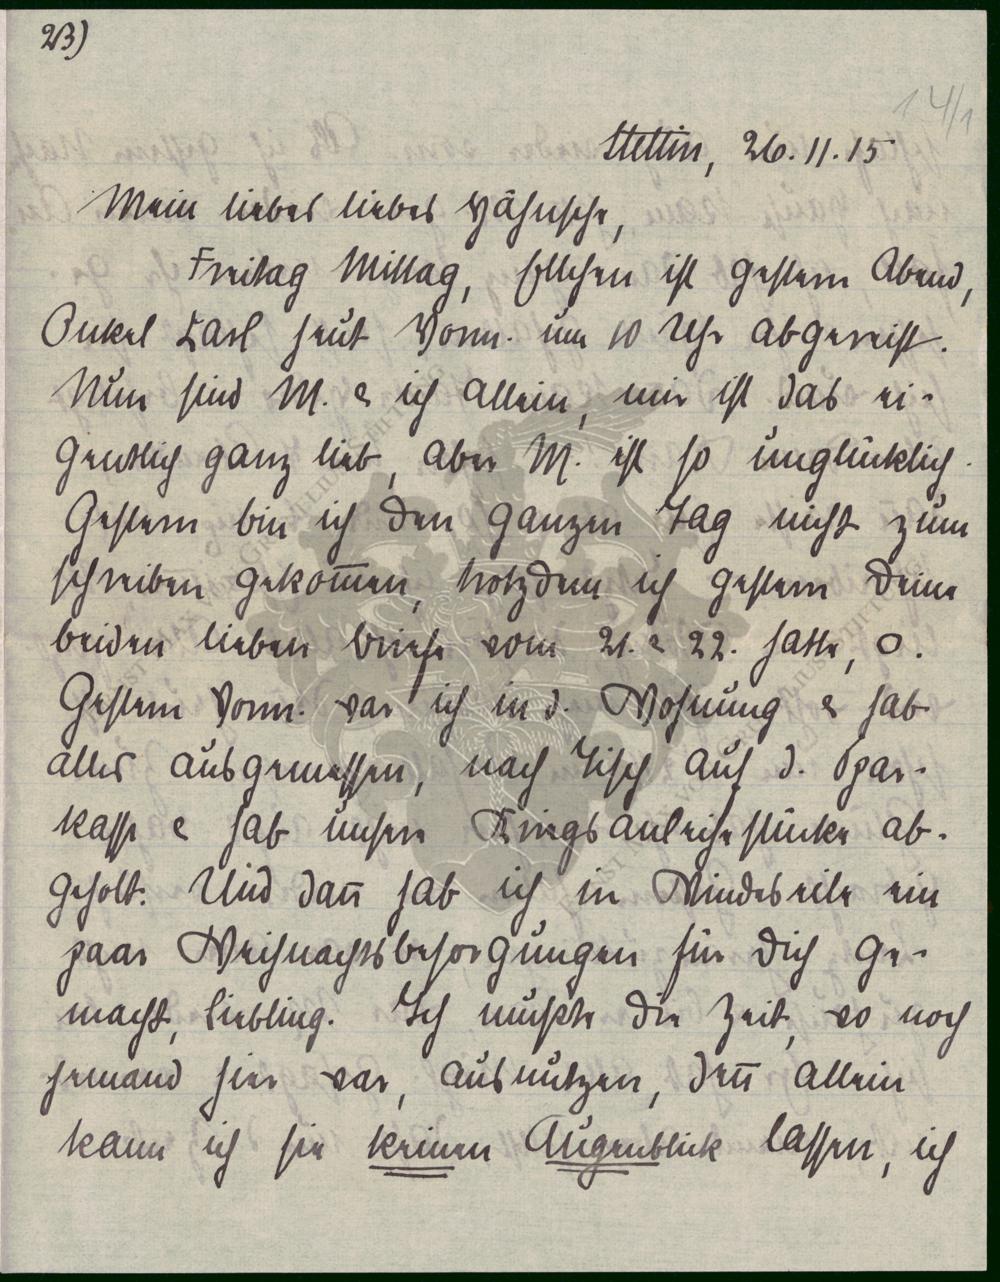 23)
14/1
Stettin, 26.11.15
Mein liebes liebes Hähnsche,
Freitag Mittag, Ellchen ist gestern Abend,
Onkel Karl heut Vorm. um 10 Uhr abgereist.
Nun sind M. & ich allein, mir ist das ei-
gentlich ganz lieb, aber M. ist so unglücklich.
Gestern bin ich den ganzen Tag nicht zum
schreiben gekom̅en, trotzdem ich gestern Deine
beiden lieben Briefe vom 21. & 22. hatte, O.
Gestern Vorm. war ich in d. Wohnung & hab
alles ausgemessen, nach Tisch auf d. Spar-
kasse & hab unsere Kriegsanleihestücke ab-
geholt. Und dan̅ hab ich in Windeseile ein
paar Weihnachtsbesorgungen für Dich ge-
macht, Liebling. Ich mußte die Zeit, wo noch
jemand hier war, ausnutzen, den̅ allein
kann ich sie keinen Augenblick lassen, ich